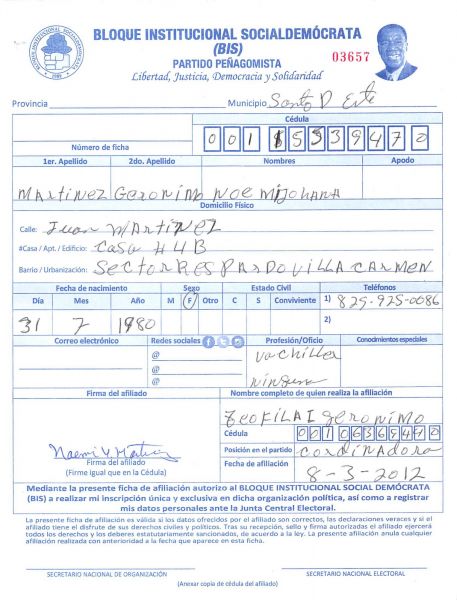 BLOQUE INSTITUCIONAL SOCIALDEMÓCRATA
(BIS)
PARTIDO PEÑAGOMISTA
03657
Libertad, Justicia, Democracia y Solidaridad
Provincia Municipio Santo D Este
Cédula
Número de ficha 0 0 1 1 5 5 3 9 4 7 0
1er. Apellido 2do. Apellido Nombres Apodo
Martinez Geronimo Noemi Johana
Domicilio Físico
Calle: Juan Martinez
#Casa / Apt. / Edificio: Casa #4B
Barrio / Urbanización: Sector Respardo Villa Carmen
Fecha de nacimiento Sexo Estado Civil Teléfonos
Día Mes Año M F Otro C S Conviviente 1) 829-925-0086
31 7 1980 2)
Correo electrónico Redes sociales Profesión/Oficio Conocimientos especiales
@ vachiller
@
@ ninguna
Firma del afiliado Nombre completo de quien realiza la afiliación
Geronimo
Cédula
0 0 1 0 6 3 6 9 4 4 0
Posición en el partido Cordinadora
Firma del afiliado Fecha de afiliación
(Firme igual que en la Cédula) 8-3-2012
Mediante la presente ficha de afiliación autorizo al BLOQUE INSTITUCIONAL SOCIAL DEMÓCRATA
(BIS) a realizar mi inscripción única y exclusiva en dicha organización política, así como a registrar
mis datos personales ante la Junta Central Electoral.
La presente ficha de afiliación es válida si los datos ofrecidos por el afiliado son correctos, las declaraciones veraces y si el
afiliado tiene el disfrute de sus derechos civiles y políticos. Tras su recepción, sello y firma autorizadas el afiliado ejercerá
todos los derechos y los deberes estatutariamente sancionados, de acuerdo a la ley. La presente afiliación anula cualquier
afiliación realizada con anterioridad a la fecha que aparece en esta ficha.
SECRETARIO NACIONAL DE ORGANIZACIÓN SECRETARIO NACIONAL ELECTORAL
(Anexar copia de cédula del afiliado)